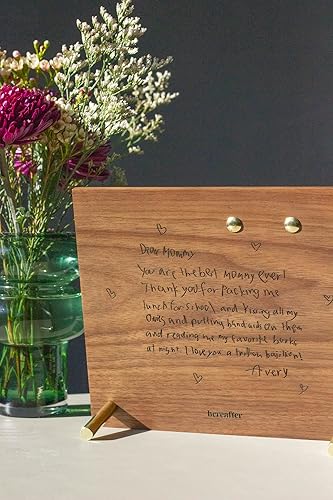 Dear Mommy
You are the best mommy ever!
Thank you for packing me
lunch for school and kissing all my
Owies and putting bandaids on them
and reading me my favorite books
at night. I love you a million bajillion!
Avery
hereafter